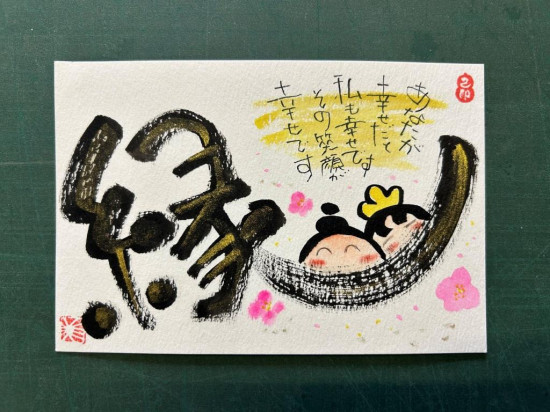 あなたが
幸せだと
私も幸せです
その笑顔が
幸せです
縁